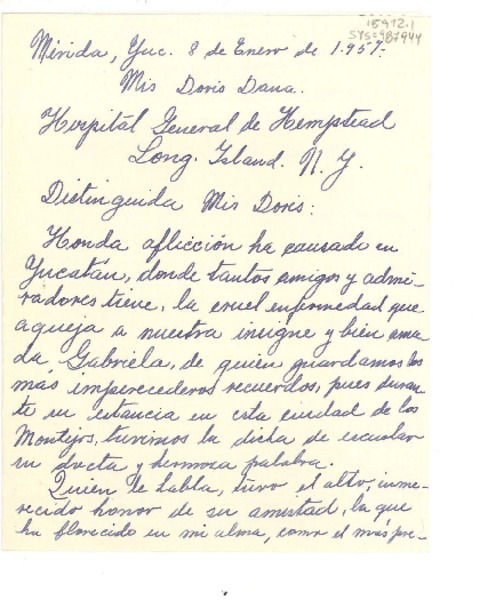 15972.1
SYS=987944
Mérida, Yuc. 8 de Enero de 1.957.
Mis Doris Dana.
Hospitál General de Hempstead
Long. Island. N. Y.
Distinguida Mis Doris:
Honda aflicción ha causado en
Yucatán, donde tantos amigos y admi-
radores tiene, la cruel enfermedad que
aqueja a nuestra insigne y bien ama-
da Gabriela, de quien guardamos los
más imperecederos recuerdos, pues duran-
te su estancia en esta ciudad de los
Montejos, tuvimos la dicha de escuchar
su docta y hermosa palabra.
Quien le habla, tuvo el alto, inme-
recido honor de su amistad, la que
ha florecido en mi alma, como el más pre-